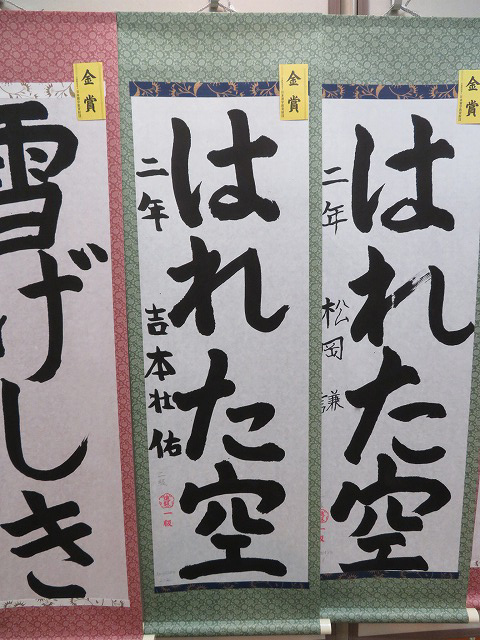 金賞
はれた空
二年
松岡謙
一級
金賞
はれた空
二年
吉本壮佑
一級
金賞
雪げしき